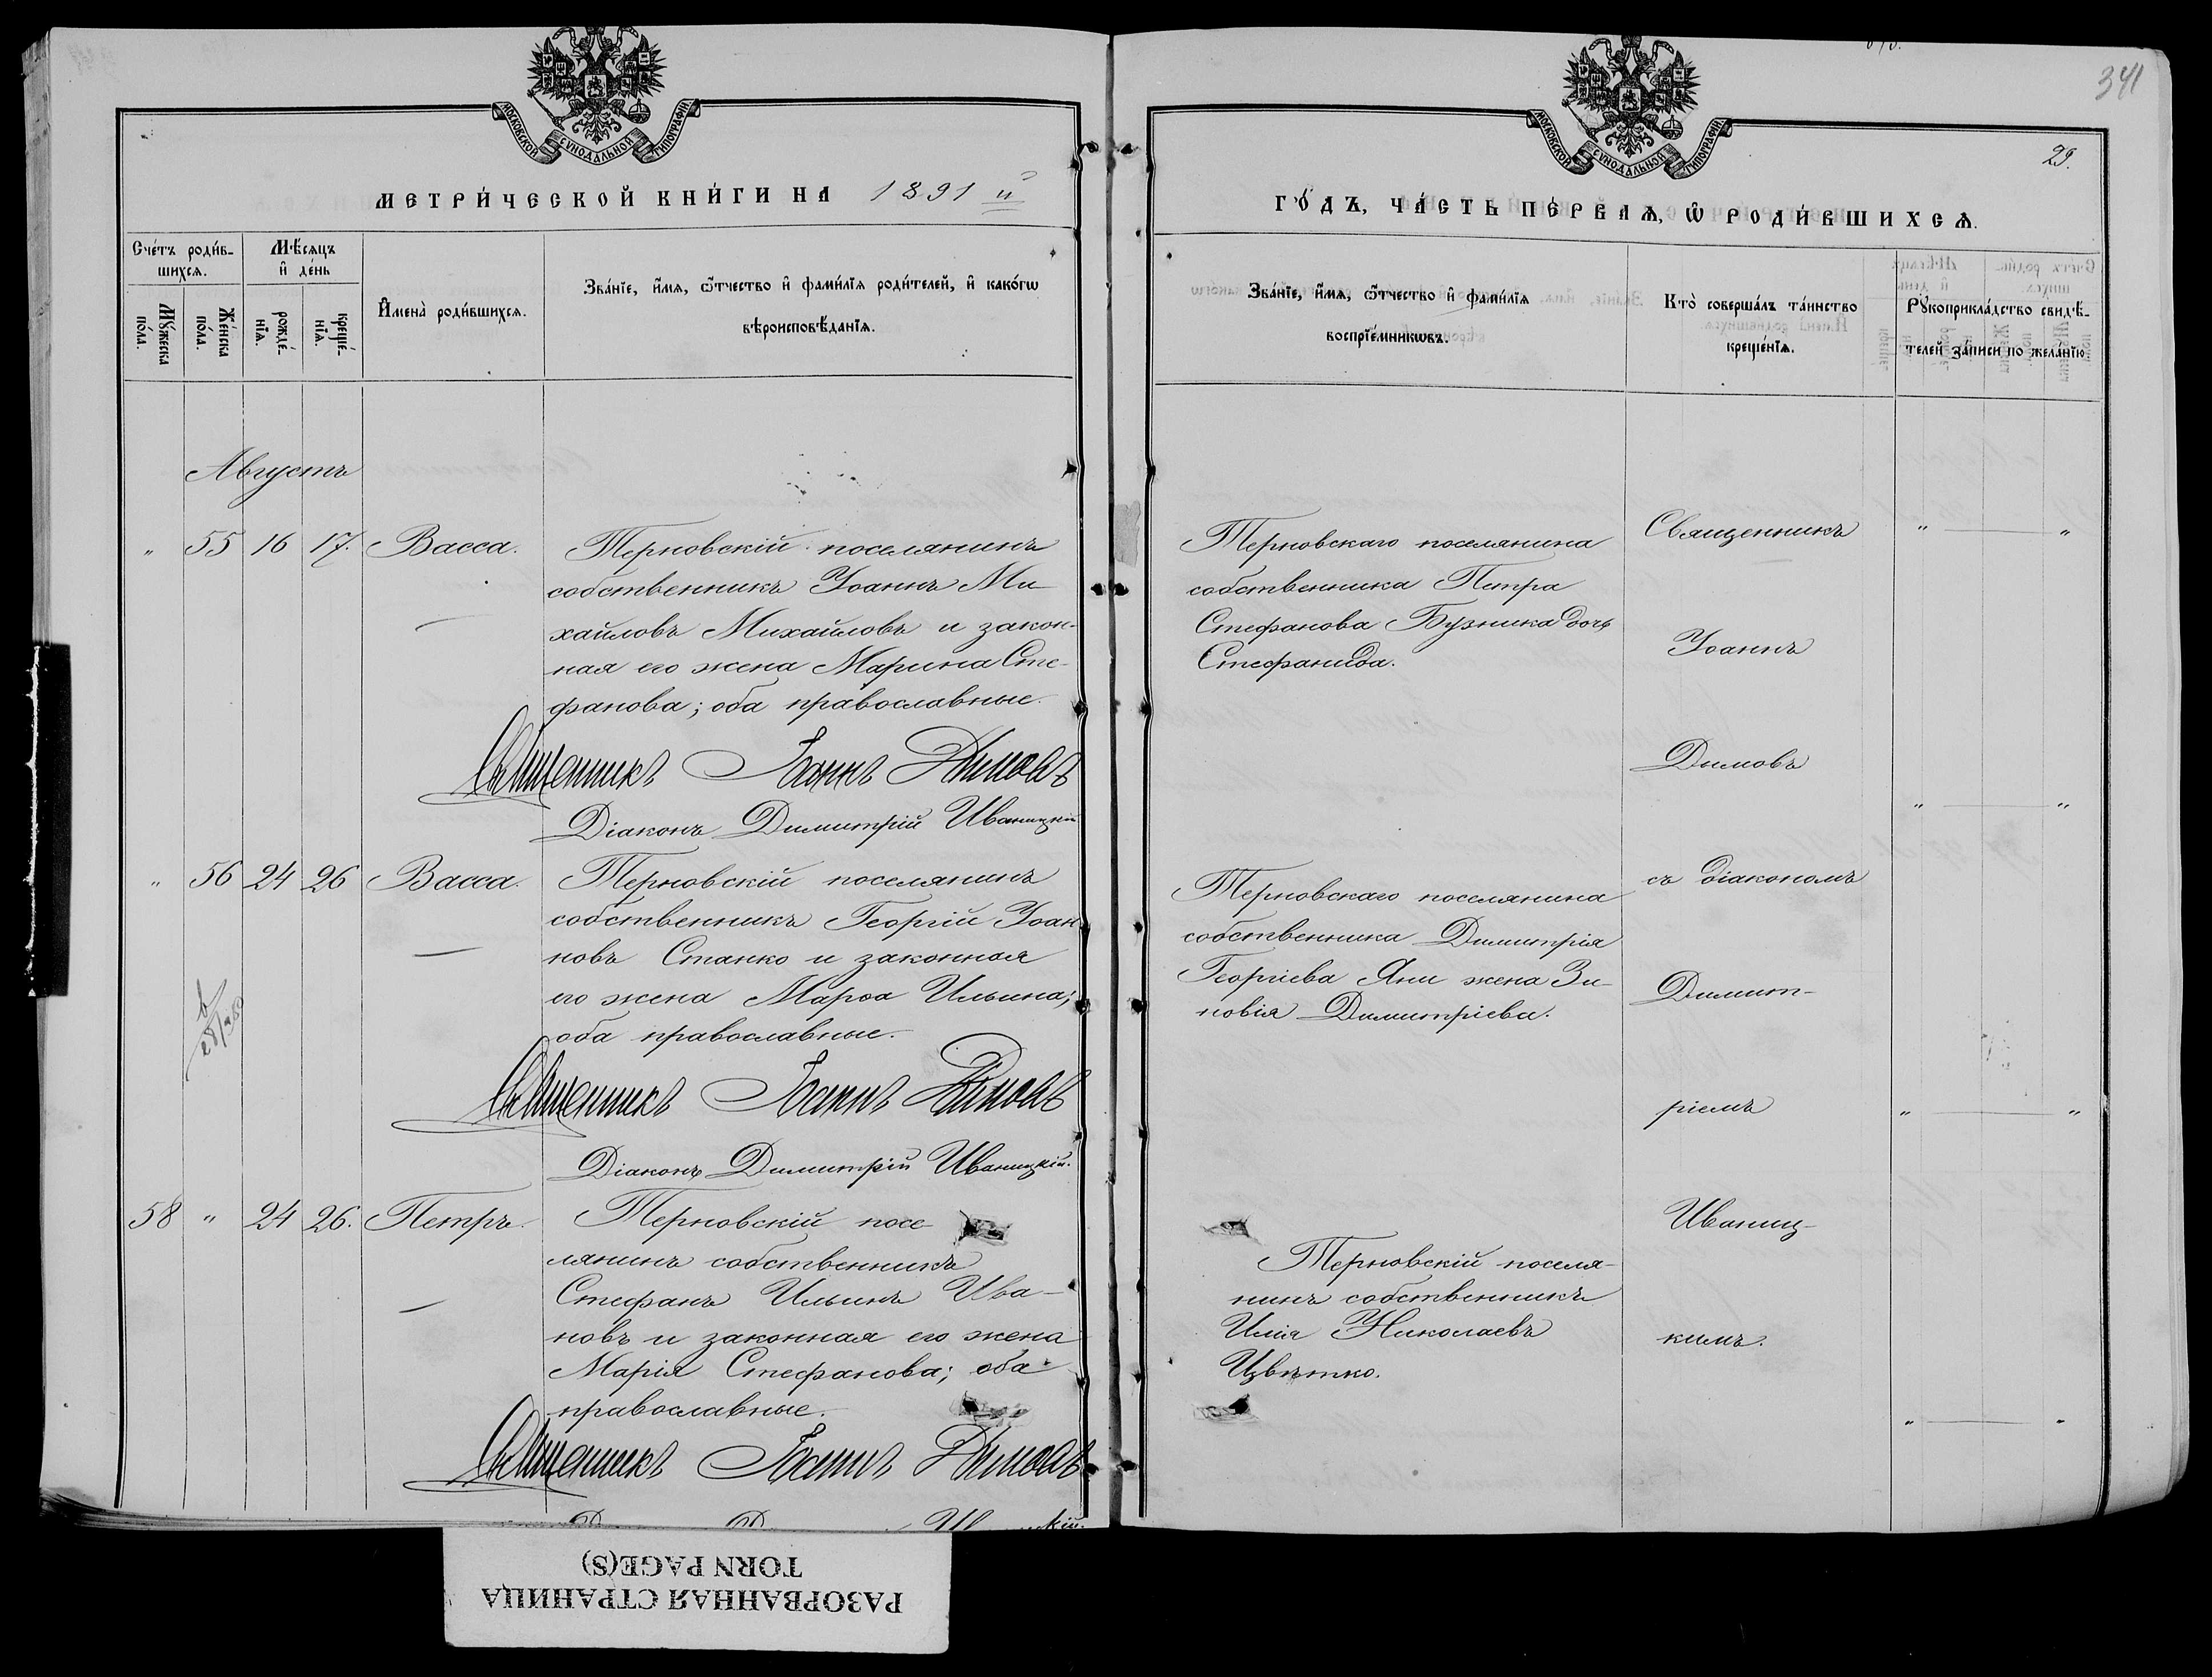 МОСКОВСКОЙ СѴНОДАЛЬНОЙ ТИПОГРАФІИ
МЕТРИ́ЧЕСКОЙ КНИ́ГИ НА 1891 й
Сче́тъ роди́в-
шихсѧ.
Мѣ́сѧцъ
и҆ де́нь
Мꙋ́жеска
по́ла.
Же́нска
по́ла.
рожде́-
нїѧ.
креще́-
нїѧ.
И҆мена̀ роди́вшихсѧ.
Зва́нїе, и҆́мѧ, ѻ҆́тчество и҆ фами́лїѧ роди́телей, и҆ како́гѡ
вѣроисповѣ́данїѧ.
Августъ
" 55 16 17. Васса.
Терновскій поселянинъ
собственникъ Іоаннъ Ми-
хайловъ Михайловъ и закон-
ная его жена Марина Сте-
фанова; оба православные.
Священникъ Іоаннъ Димовъ
Діаконъ Димитрій Иваницкій
" 56 24 26 Васса.
Терновскій поселянинъ
собственникъ Георгій Іоан-
новъ Станко и законная
его жена Марѳа Ильина;
оба православные.
Священникъ Іоаннъ Димовъ
Діаконъ Димитрій Иваницкій.
58 " 24 26. Петръ.
Терновскій посе-
лянинъ собственникъ
Стефанъ Ильинъ Ива-
новъ и законная его жена
Марія Стефанова; оба
православные.
Священникъ Іоаннъ Димовъ
МОСКОВСКОЙ СѴНОДАЛЬНОЙ ТИПОГРАФІИ
341
29.
ГО́ДЪ, ЧА́СТЬ ПЕ́РВАѦ, Ѡ҆ РОДИ́ВШИХСѦ.
Зва́нїе, и҆́мѧ, ѻ҆́тчество и҆ фами́лїѧ
воспрїе́мникѡвъ.
Кто̀ соверша́лъ та́инство
креще́нїѧ.
Рꙋкоприкла́дство свидѣ́-
телей за́писи по жела́нїю.
Терновскаго поселянина
собственника Петра
Стефанова Бузника дочь
Стефанида.
Терновскаго поселянина
собственника Димитрія
Георгіева Яни жена Зи-
новія Димитріева.
Терновскій поселя-
нинъ собственникъ
Илія Николаевъ
Цвѣтко.
Священникъ
Іоаннъ
Димовъ
съ діакономъ
Димит-
ріемъ
Иваниц-
кимъ.
РАЗОРВАННАЯ СТРАНИЦА
TORN PAGE(S)